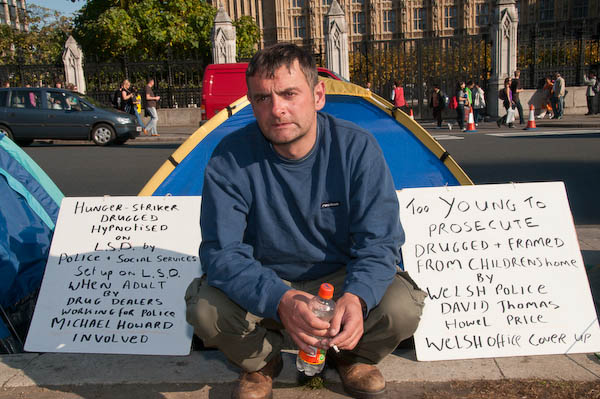 HUNGER-STRIKER
DRUGGED
HYPNOTISED
ON
L.S.D. by
POLICE + SOCIAL SERVICES
SET UP ON L.S.D.
WHEN ADULT
BY
DRUG DEALERS
WORKING FOR POLICE
MICHAEL HOWARD
INVOLVED
TOO YOUNG TO
PROSECUTE
DRUGGED + FRAMED
FROM CHILDRENS HOME
BY
WELSH POLICE
DAVID THOMAS
HOWEL PRICE
WELSH OFFICE COVER UP